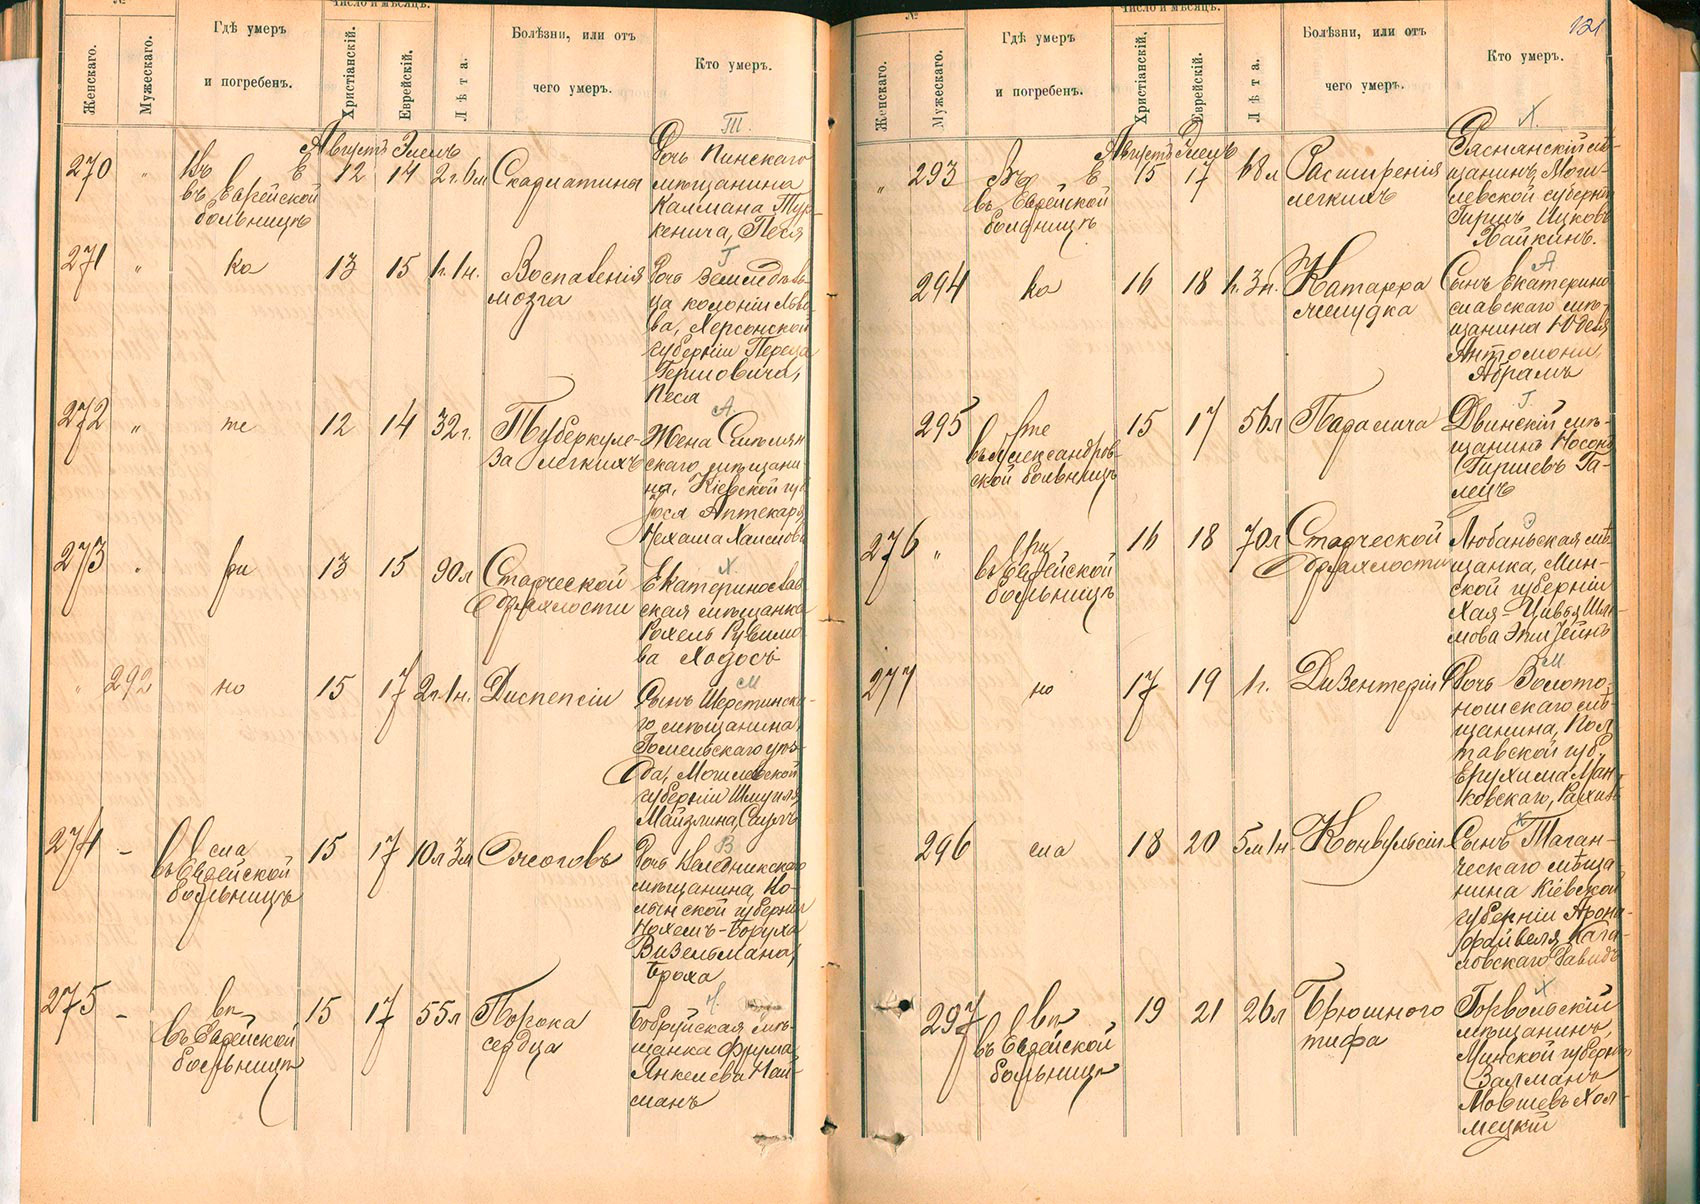 №
Число и мѣсяцъ.
Женскаго.
Мужескаго.
Гдѣ умеръ
и погребенъ.
Христіанскій.
Еврейскій.
Лѣта.
Болѣзни, или отъ
чего умеръ.
Кто умеръ.
Т.
Августъ Элелъ
270 " Въ Е
въ Еврейской
больницѣ
12 14 2г. 6м
Скарлатины
Дочь Пинскаго
мѣщанина
Калмана Тур-
кенича, Песя
271 " ка 13 15 1г. 1н.
Воспаленія
мозга
Г
Дочь Земледѣль-
ца колоніи Льво-
ва, Херсонской
губерніи Переца
Гершовича,
Песя
272 " те 12 14 32г.
Туберкуле-
за легкихъ
А.
Жена Смѣлян-
скаго мѣщани-
на, Кіевской губ
Іося Аптекаря
Нехама Хаимова
273 " ри 13 15 90л
Старческой
дряхлости
Х
Екатеринослав-
ская мѣщанка
Рохель Рувимо-
ва Ходосъ
" 292 но 15 17 2г. 1н.
Диспепсіи
М
Сынъ Шерстинска-
го мѣщанина,
Гомельскаго уѣз-
да, Могилевской
губерніи Шмуиля
Майзлина
274 – сла
въ Еврейской
больницѣ
15 17 10л 3м
Ожоговъ
В
Дочь
мѣщанина, Во-
лынской губерніи
Нохемъ-Боруха
Визельмана,
Броха
275 – вп
въ Еврейской
больницѣ
15 17 55л
Порока
сердца
Н.
Бобруйская мѣ-
щанка Фрума
Янкелева Най-
манъ
№
Число и мѣсяцъ.
121
Женскаго.
Мужескаго.
Гдѣ умеръ
и погребенъ.
Христіанскій.
Еврейскій.
Лѣта.
Болѣзни, или отъ
чего умеръ.
Кто умеръ.
Х.
Августъ Элелъ
" 293 Въ Е
въ Еврейской
больницѣ
15 17 68л
Расширенія
легкихъ
Ряснянскій мѣ-
щанинъ, Моги-
левской губерніи
Гиршъ Ицковъ
Хайкинъ.
294 ка 16 18 1г. 3н.
Катарра
желудка
А
Сынъ Екатерино-
славскаго мѣ-
щанина Юделя
Антомони,
Абрамъ
295 те
въ Александров-
ской больницѣ
15 17 56л
Паралича
Г.
Двинскій мѣ-
щанинъ Носонъ
Гиршевъ Га-
лецъ
276 " ри
въ Еврейской
больницѣ
16 18 70л
Старческой
дряхлости
Любаньская мѣ-
щанка, Мин-
ской губерніи
Хая-Цивья Шлё-
мова Эпштейнъ
277 но 17 19 1г.
Дизентеріи
М
Дочь Золото-
ношскаго мѣ-
щанина, Пол-
тавской губ.
Ерухима Ман-
ковскаго, Рахиль
296 сла 18 20 5м 1н
Конвульсіи
К
Сынъ Таган-
ческаго мѣща-
нина Кіевской
губерніи Арона-
Файвеля Кага-
ловскаго Давидъ
297 вп
въ Еврейской
больницѣ
19 21 26л
Брюшного
тифа
Х
Горвольскій
мѣщанинъ,
Минской губерніи
Залманъ
Мовшевъ Хол-
мецкій